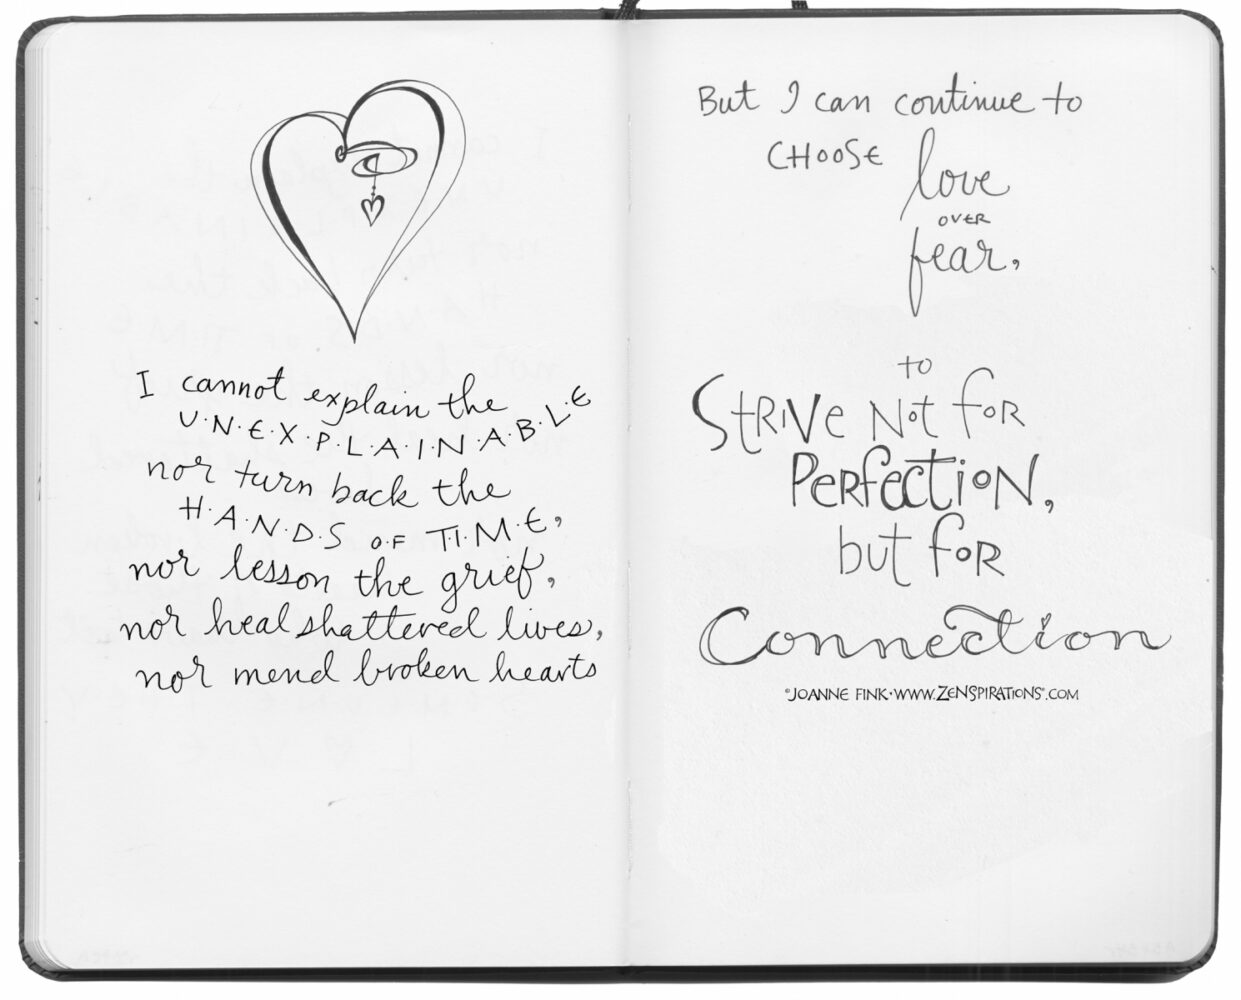 I cannot explain the
U·N·E·X·P·L·A·I·N·A·B·L·E
nor turn back the
H·A·N·D·S O·F T·I·M·E,
nor lesson the grief,
nor heal shattered lives,
nor mend broken hearts
But I can continue to
CHOOSE love
OVER
fear,
to
STRIVE NOT FOR
PERFECTION,
but FOR
Connection
©JOANNE FINK·WWW.ZENSPIRATIONS®.COM